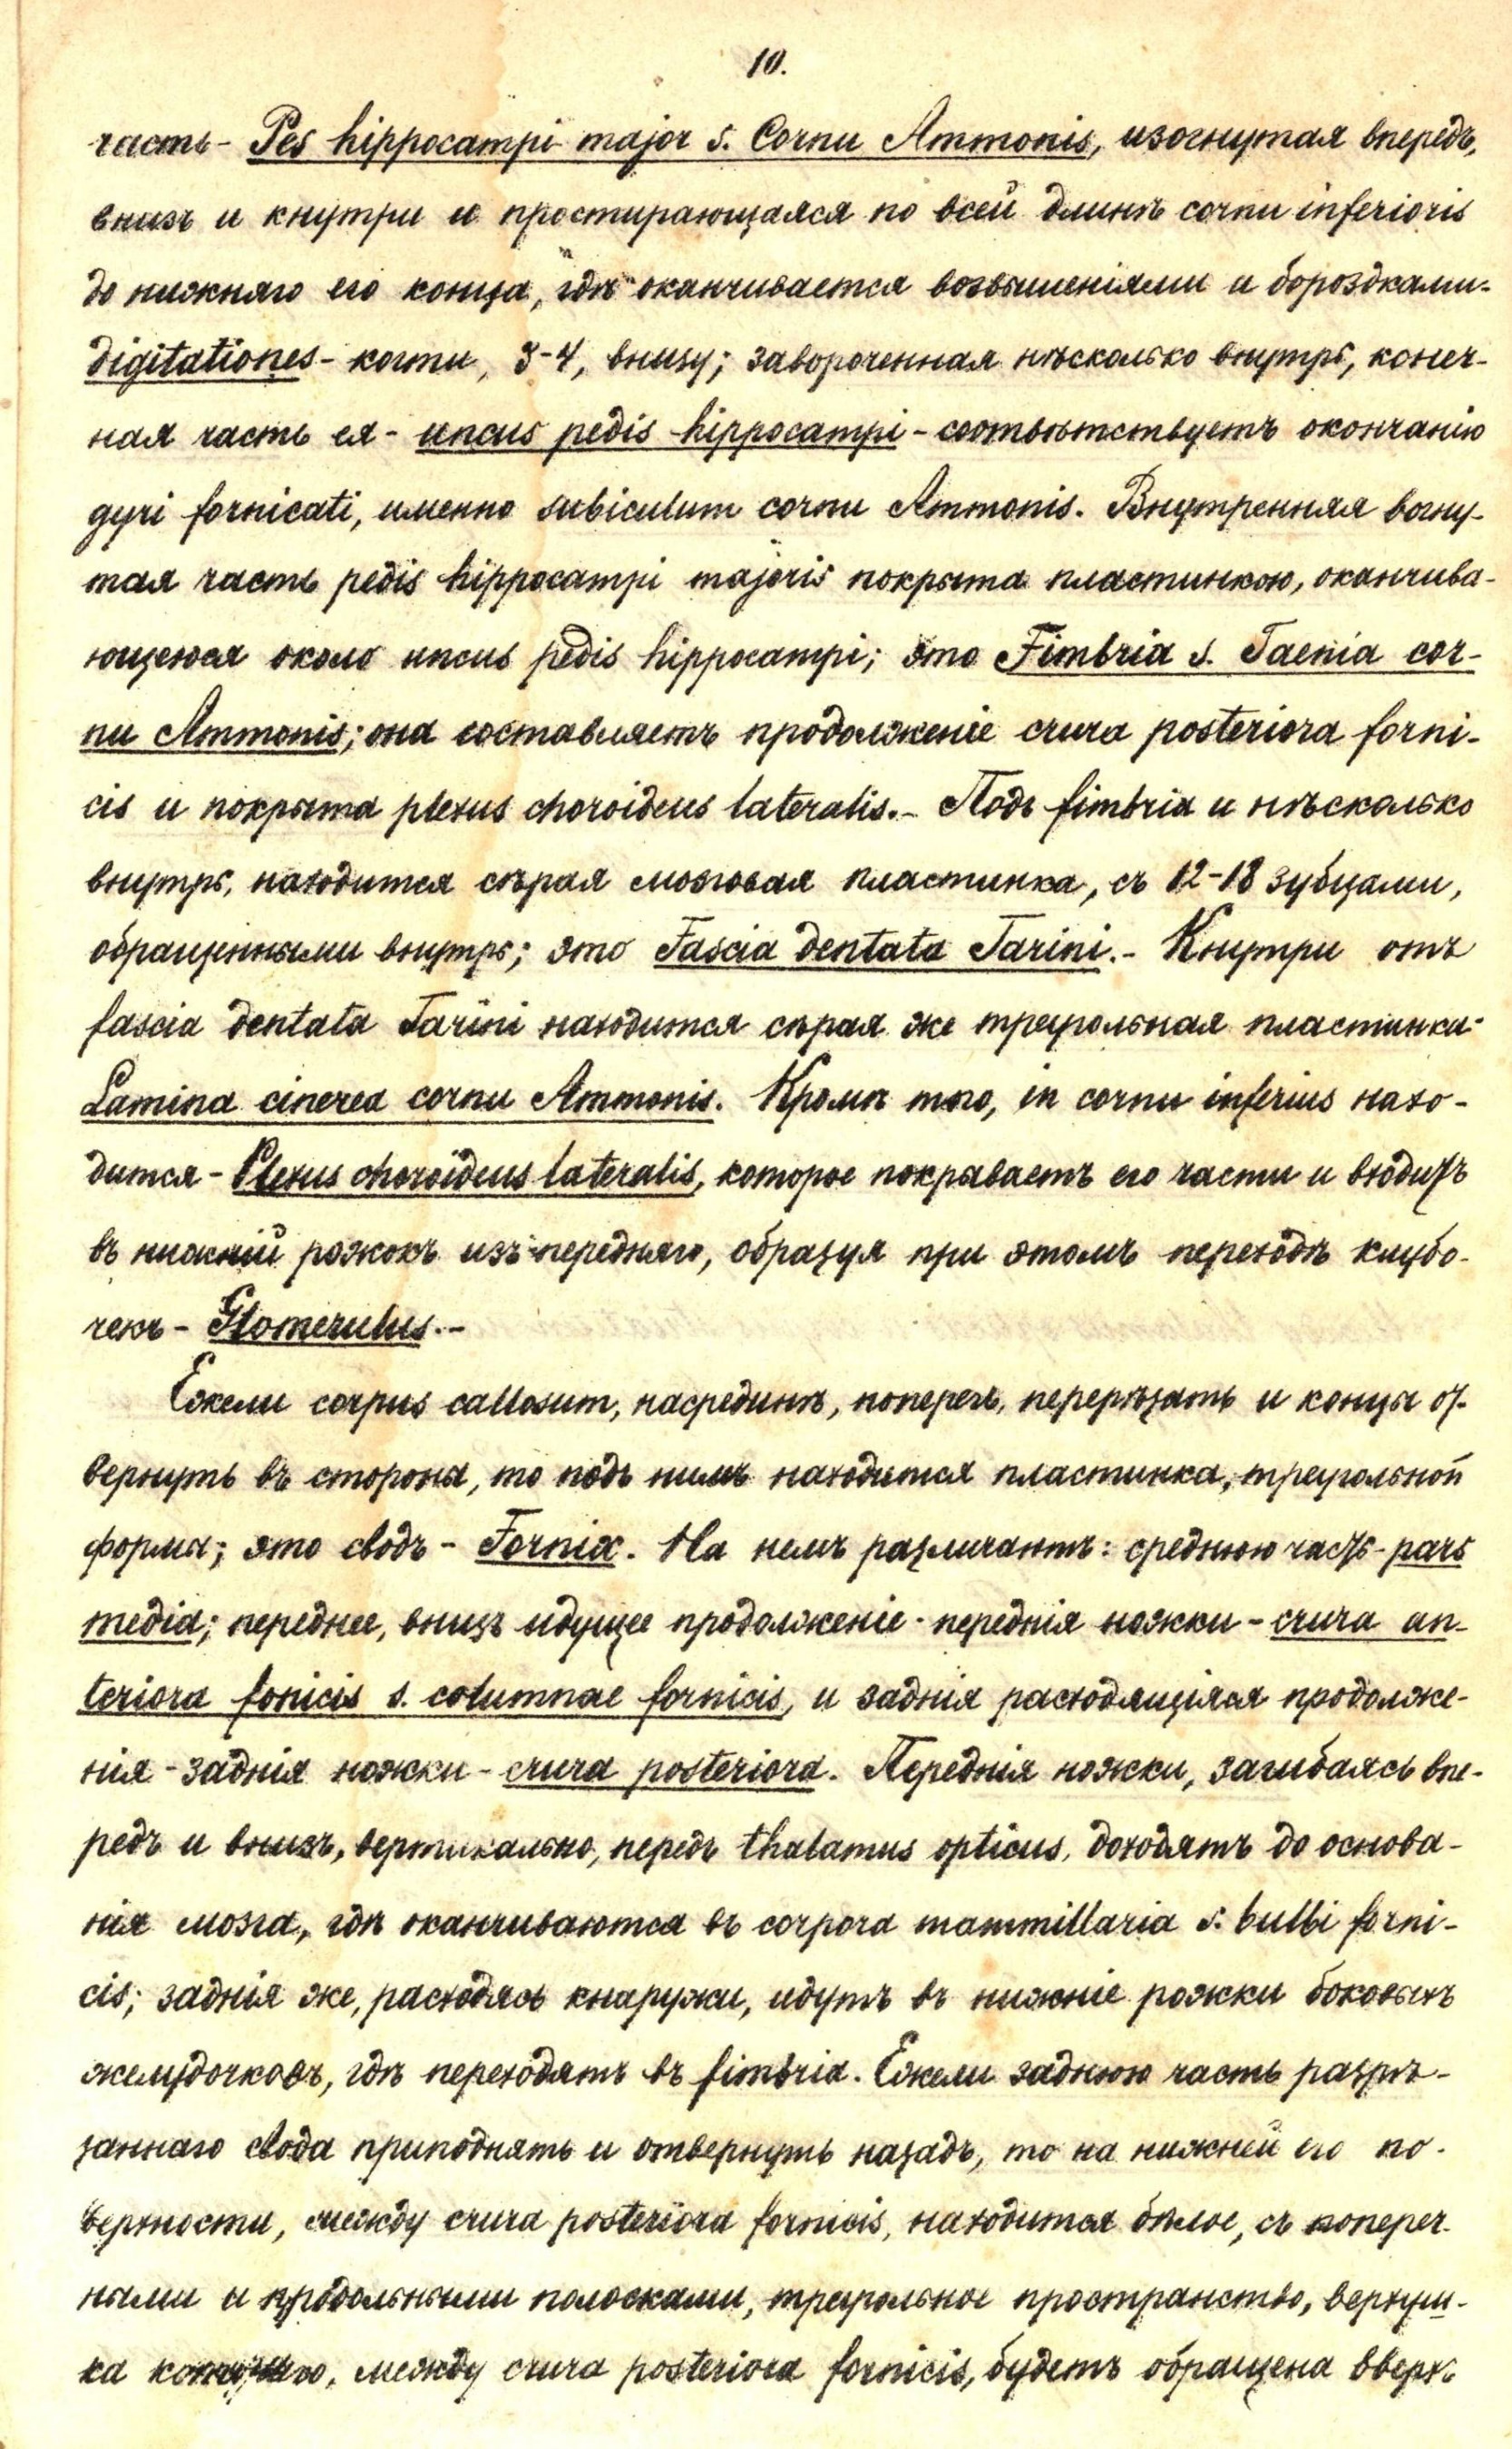 10.
часть - Pes hippocampi major s. Cornu Ammonis, изогнутая впередъ,
внизъ и кнутри и простирающаяся по всей длинѣ cornu inferioris
до нижняго его конца, гдѣ оканчивается возвышеніями и бороздками-
digitationes - когти, 3-4, внизу; завороченная нѣсколько внутрь, конеч-
ная часть ея - uncus pedis hippocampi - соотвѣтствуетъ окончанію
gyri fornicati, именно subiculum cornu Ammonis. Внутренняя вогну-
тая часть pedis hippocampi majoris покрыта пластинкою, оканчива-
ющеюся около uncus pedis hippocampi; это Fimbria s. Taenia cor-
nu Ammonis; она составляетъ продолженіе crura posteriora forni-
cis и покрыта plexus choroideus lateralis.- Подъ fimbria и нѣсколько
внутрь, находится сѣрая мозговая пластинка, съ 12-18 зубцами,
обращенными внутрь; это Fascia dentata Tarini.- Кнутри отъ
fascia dentata Tarini находится сѣрая же треугольная пластинка-
Lamina cinerea cornu Ammonis. Кромѣ того, in cornu inferius нахо-
дится - Plexus choroideus lateralis, которое покрываетъ его части и входитъ
въ нижній рожокъ изъ передняго, образуя при этомъ переходѣ клубо-
чекъ - Glomerulus.-
Ежели corpus callosum, насрединѣ, поперегъ, перерѣзать и концы от-
вернуть въ стороны, то подъ нимъ находится пластинка, треугольной
формы; это сводъ - Fornix. На немъ различаютъ: среднюю часть - pars
media; переднее, внизъ идущее продолженіе - переднія ножки - crura an-
teriora fonicis s. columnae fornicis, и заднія расходящіяся продолже-
нія - заднія ножки - crura posteriora. Переднія ножки, загибаясь впе-
редъ и внизъ, вертикально, передъ thalamus opticus, доходятъ до основа-
нія мозга, гдѣ оканчиваются въ corpora mammillaria s. bulbi forni-
cis; заднія же, расходясь кнаружи, идутъ въ нижніе рожки боковыхъ
желудочковъ, гдѣ переходятъ въ fimbria. Ежели заднюю часть разрѣ-
заннаго свода приподнять и отвернуть назадъ, то на нижней его по-
верхности, между crura posteriora fornicis, находится бѣлое, съ попереч-
ными и продольными полосками, треугольное пространство, верхуш-
ка между crura posteriora fornicis, будетъ обращена вверхъ